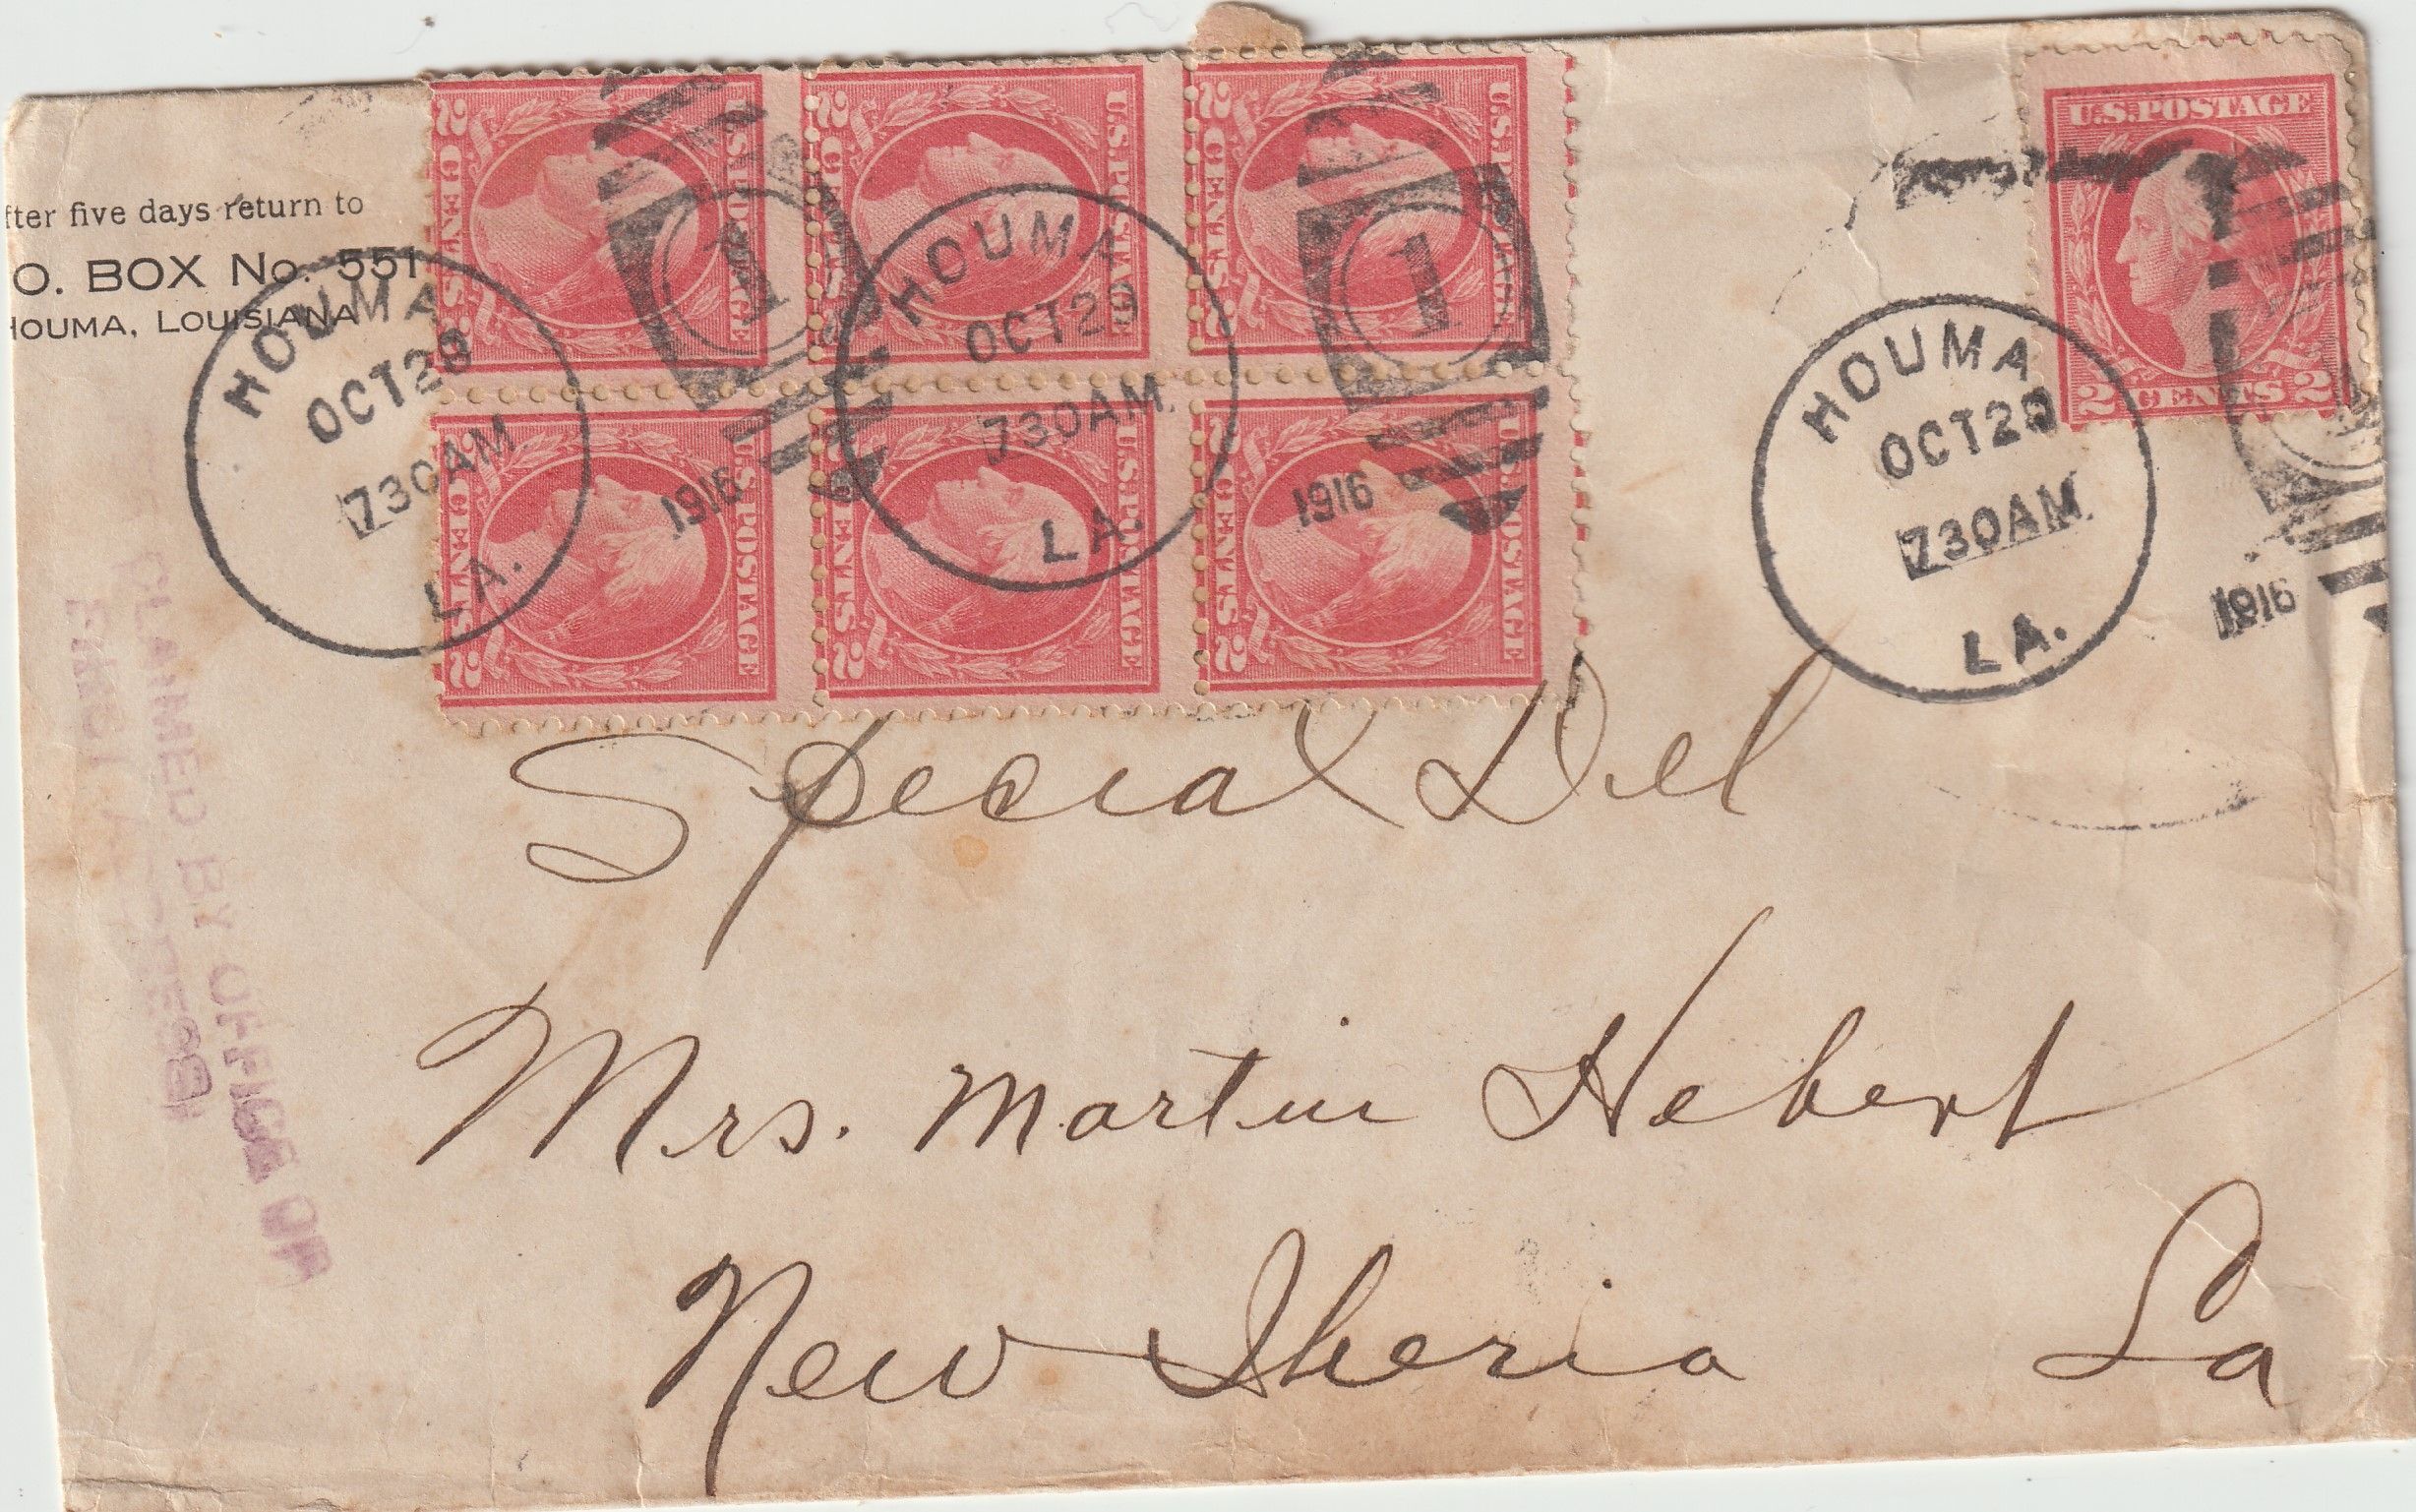 fter five days return to
O. BOX No. 551
HOUMA, LOUISIANA
HOUMA
OCT 29
730AM
LA.
1
1916
HOUMA
OCT 29
730AM.
LA.
1
1916
HOUMA
OCT 29
730AM.
LA.
1
1916
U.S. POSTAGE
2 CENTS
U.S. POSTAGE
2 CENTS
U.S. POSTAGE
2 CENTS
U.S. POSTAGE
2 CENTS
U.S. POSTAGE
2 CENTS
U.S. POSTAGE
2 CENTS
U.S. POSTAGE
2 CENTS 2
CLAIMED BY OFFICE OF
Special Del
Mrs. Martin Hebert
New Iberia La